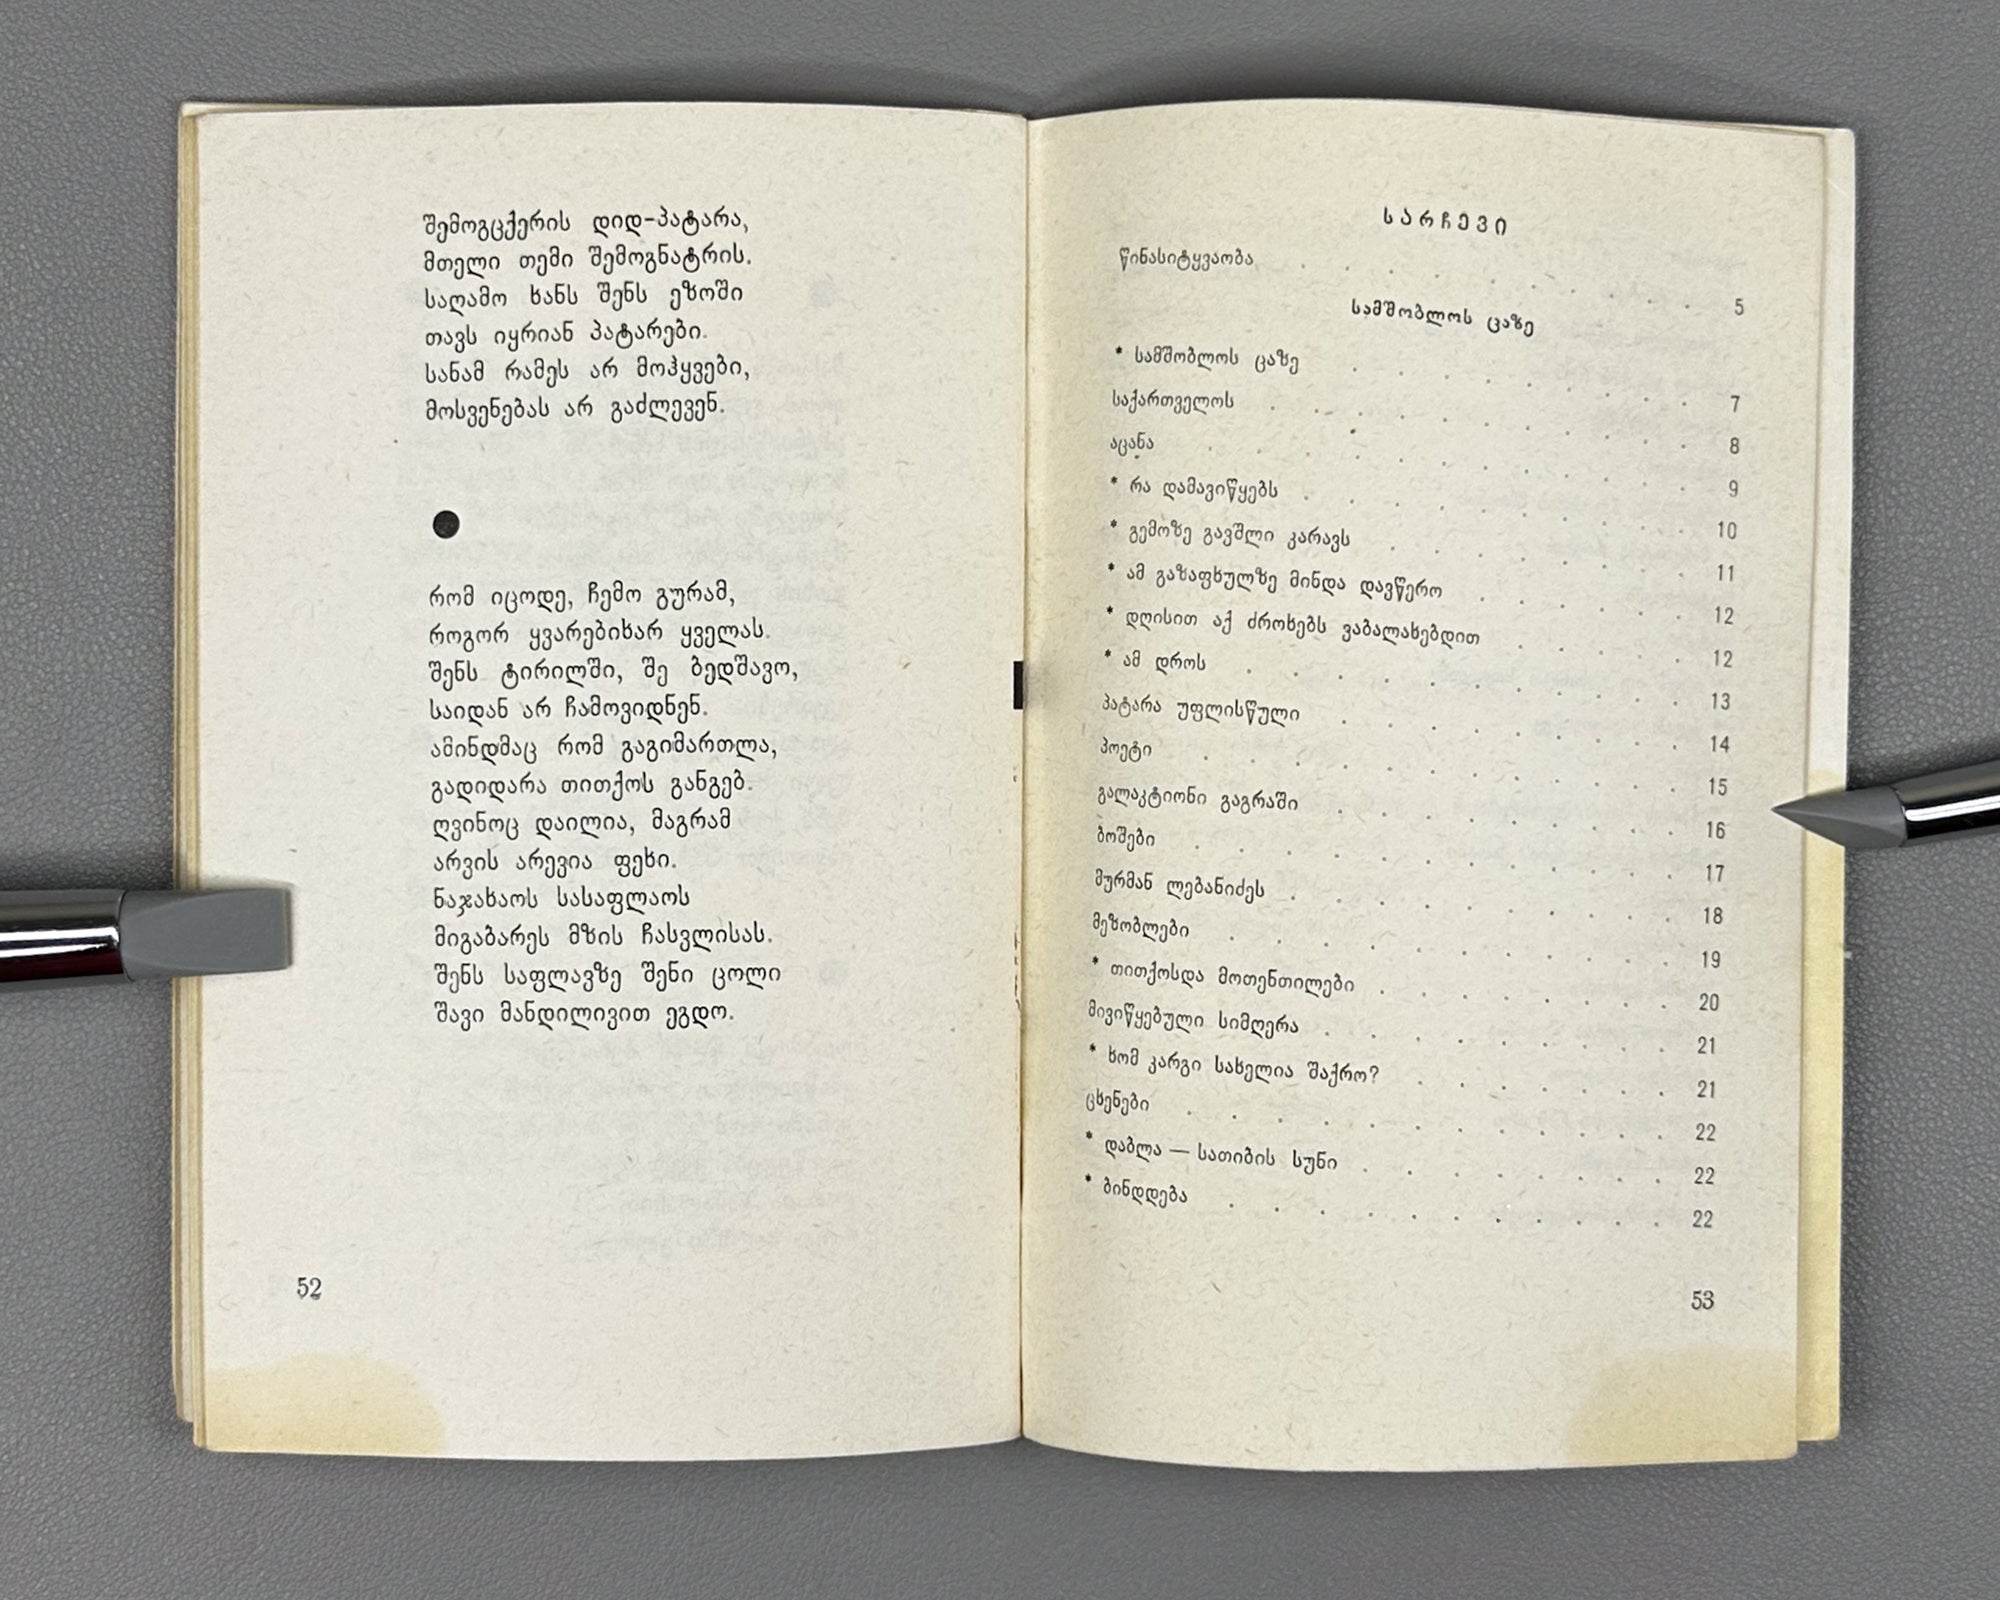 შემოგცქერის დიდ-პატარა,
მთელი თემი შემოგნატრის.
საღამო ხანს შენს ეზოში
თავს იყრიან პატარები.
სანამ რამეს არ მოჰყვები,
მოსვენებას არ გაძლევენ.
●
რომ იცოდე, ჩემო გურამ,
როგორ ყვარებიხარ ყველას.
შენს ტირილში, შე ბედშავო,
საიდან არ ჩამოვიდნენ.
ამინდმაც რომ გაგიმართლა,
გადიდარა თითქოს განგებ.
ღვინოც დაილია, მაგრამ
არვის არევია ფეხი.
ნაჯახაოს სასაფლაოს
მიგაბარეს მზის ჩასვლისას.
შენს საფლავზე შენი ცოლი
შავი მანდილივით ეგდო.
52
სარჩევი
წინასიტყვაობა . . . . . . . . . . 5
სამშობლოს ცაზე
* სამშობლოს ცაზე . . . . . . . . 7
საქართველოს . . . . . . . . . . 8
აცანა . . . . . . . . . . . . 9
* რა დამავიწყებს . . . . . . . . . 10
* გემოზე გავშლი კარავს . . . . . . . 11
* ამ გაზაფხულზე მინდა დავწერო . . . . . 12
* დღისით აქ ძროხებს ვაბალახებდით . . . . 12
* ამ დროს . . . . . . . . . . 13
პატარა უფლისწული . . . . . . . . 14
პოეტი . . . . . . . . . . . 15
გალაკტიონი გაგრაში . . . . . . . . 16
ბოშები . . . . . . . . . . . 17
მურმან ლებანიძეს . . . . . . . . . 18
მეზობლები . . . . . . . . . . 19
* თითქოსდა მოთენთილები . . . . . . . 20
მივიწყებული სიმღერა . . . . . . . . 21
* ხომ კარგი სახელია შაქრო? . . . . . . 21
ცხენები . . . . . . . . . . . 22
* დაბლა — სათიბის სუნი . . . . . . . 22
* ბინდდება . . . . . . . . . . 22
53